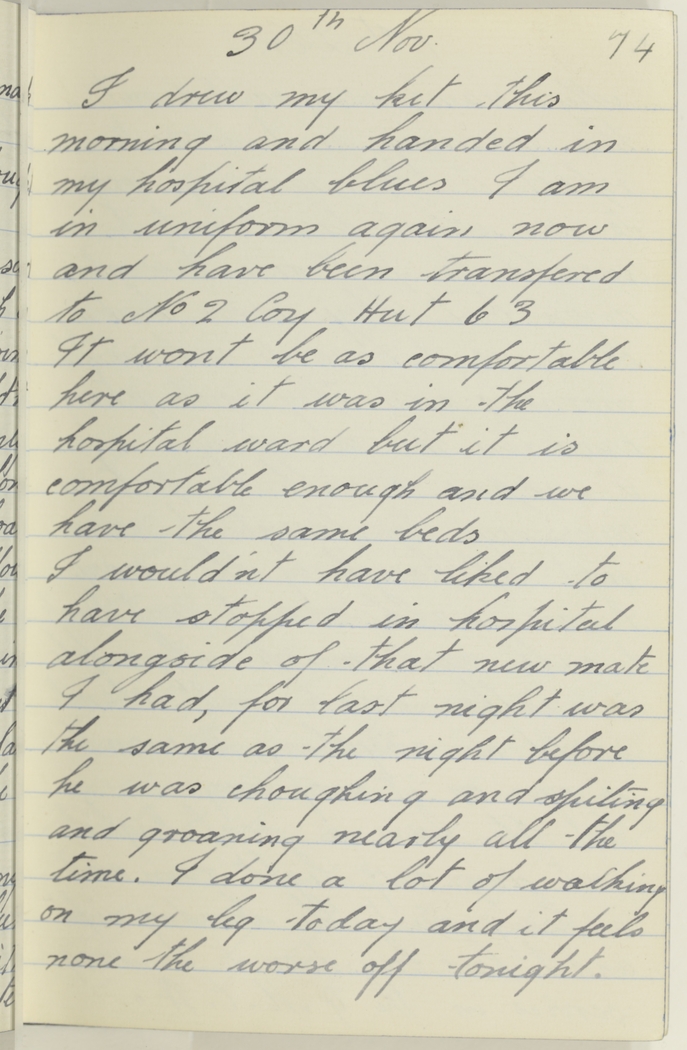 30th Nov. 74
I drew my kit this
morning and handed in
my hospital blues I am
in uniform again now
and have been transfered
to No 2 Coy Hut 63
It wont be as comfortable
here as it was in the
hospital ward but it is
comfortable enough and we
have the same beds
I wouldn't have liked to
have stopped in hospital
alongside of that new mate
I had, for last night was
the same as the night before
he was choughing and spiting
and groaning nearly all the
time. I done a lot of walking
on my leg today and it feels
none the worse off tonight.